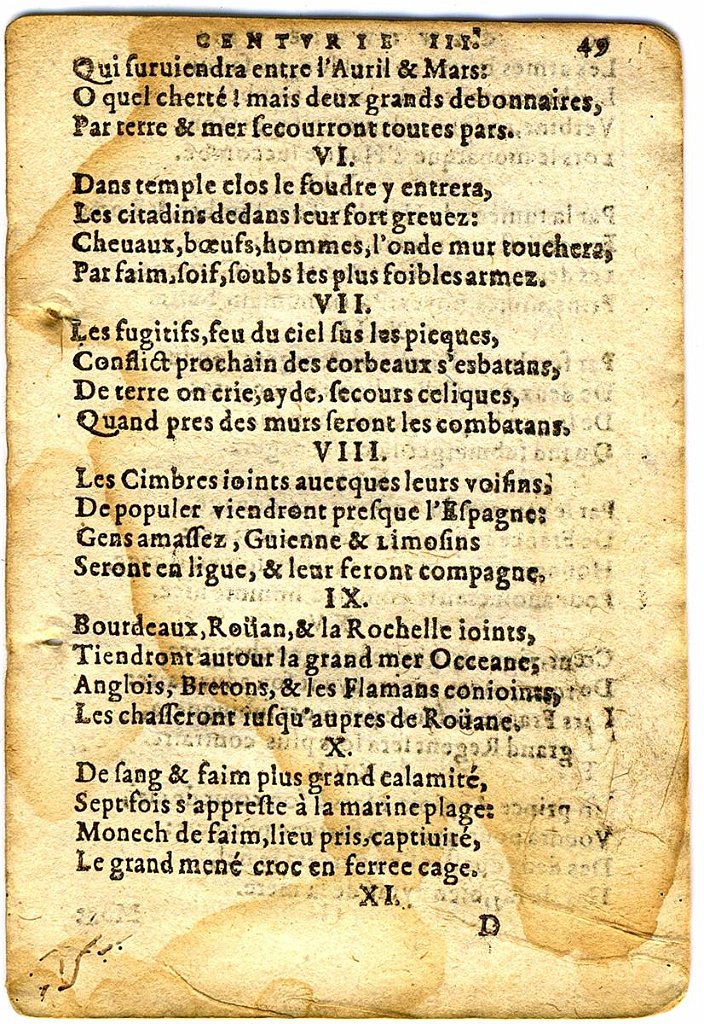 CENTVRIE III. 49
Qui ſuruiendra entre l'Auril & Mars:
O quel cherté! mais deux grands debonnaires,
Par terre & mer ſecourront toutes pars.
VI.
Dans temple clos le foudre y entrera,
Les citadins dedans leur fort greuez:
Cheuaux, bœufs, hommes, l'onde mur touchera,
Par faim, ſoif, ſoubs les plus foibles armez.
VII.
Les fugitifs, feu du ciel ſus les picques,
Conflict prochain des corbeaux s'esbatans,
De terre on crie, ayde, ſecours celiques,
Quand pres des murs ſeront les combatans.
VIII.
Les Cimbres ioints auecques leurs voiſins,
De populer viendront preſque l'Eſpagne:
Gens amaſſez, Guienne & Limoſins
Seront en ligue, & leur feront compagne.
IX.
Bourdeaux, Roüan, & la Rochelle ioints,
Tiendront autour la grand mer Occeane,
Anglois, Bretons, & les Flamans conioints,
Les chaſſeront iuſqu'aupres de Roüane.
X.
De ſang & faim plus grand calamité,
Sept fois s'appreſte à la marine plage:
Monech de faim, lieu pris, captiuité,
Le grand mené croc en ferree cage.
XI.
D